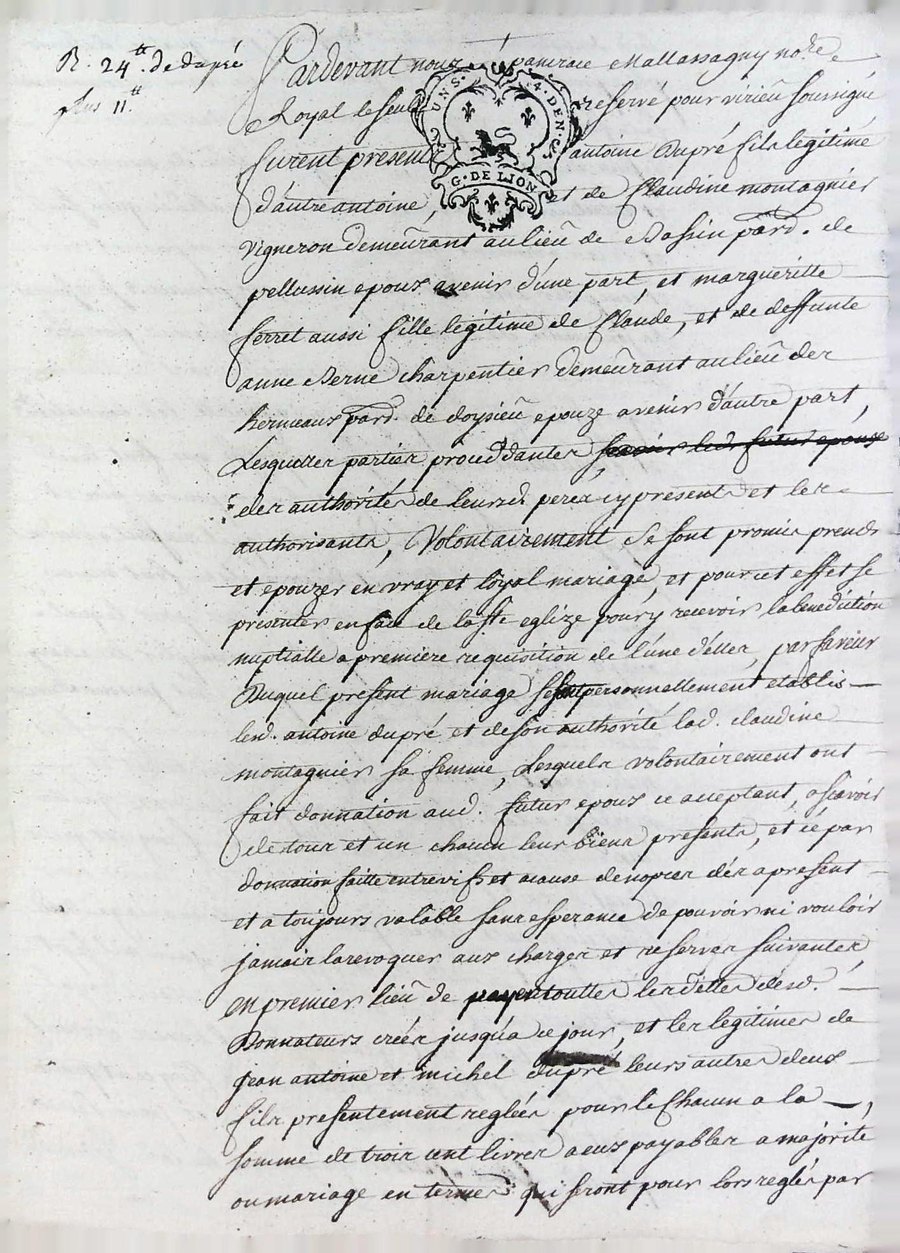 R. 24.tt de dupré
plus 11.tt
UN S. 4. DEN.rs
G. DE LION
Pardevant nous pancraie Mallassagny no.re
Royal le seul reservé pour virieu soussigné
furent presents antoine Dupré fils legitime
d'autre antoine, et de Claudine montagnier
vigneron demeurant au lieu de Bassin parr. de
pellussin epoux avenir d'une part, et margueritte
ferret aussi fille legitime de Claude, et de deffunte
anne Berne charpentier demeurant au lieu des
hermeaux parr. de doysieu epouze avenir d'autre part,
Lesquelles parties proceddantes scavoir led. futur epoux
des authorités de leursd. peres cy presents et les
authorisants, Volontairement se sont promis prendre
et epouzer en vray et loyal mariage, et pour cet effet se
presenter en face de la s.te eglize pour y recevoir la benediction
nuptialle a premiere requisition de l'une d'elles, par faveur
Duquel present mariage se sont personnellement etablis
led. antoine dupré et de son authorité lad. claudine
montagnier sa femme, Lesquels volontairement ont
fait donnation aud. futur epoux ce acceptant, ascavoir
de tous et un chacun leurs biens presents, et ce par
donnation faitte entre vifs et a cause de nopces dès a present
et a toujours valable sans esperance de pouvoir ni vouloir
jamais la revoquer aux charges et reserves suivantes,
en premier lieu de payer touttes les dettes desd.
Donnateurs créés jusqu'a ce jour, et les legitimes de
jean antoine et michel dupré leurs autres deux
fils presentement reglées pour le Chacun a la
somme de trois cent livres a eux payables a majorite
ou mariage en termes qui seront pour lors reglés par